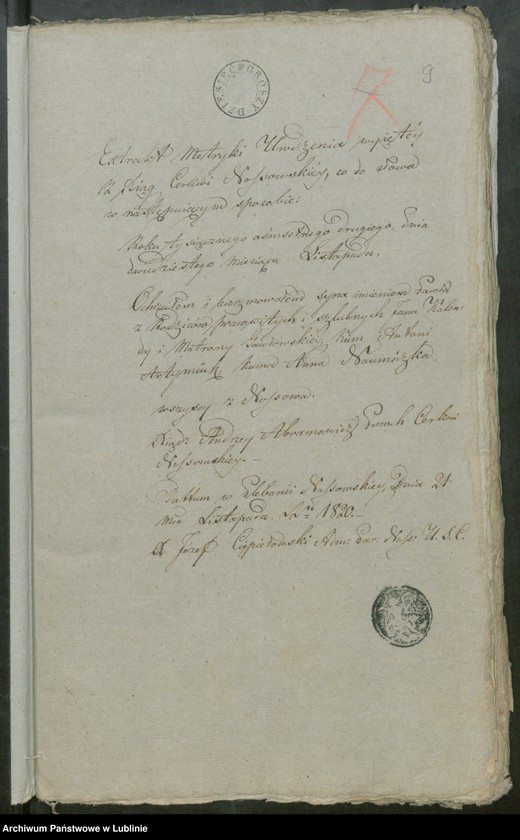 DZIESIĘĆ GROSZY
7
9
Extrakt Metryki Urodzenia wyjętéy
z Xiąg Cerkwi Nossowskiey, co do słowa
w następuiącym sposobie:
Roku tysiącznego ośmsetnego drugiego, dnia
dwudziestego Miesiąca Listopada.
Ochrzciłem i bierzmowałem syna imieniem Pawła
z Rodziców pracowitych i szlubnych Jana
i Matrony Kum Antoni
Artymiuk Kuma Anna
wszyscy z Nossowa.
Xiądz Andrzey Abramowicz Paroch Cerkwi
Nossowskiey.—
Dattum w Plebanii Nossowskiey, Dnia 21.
Mca Listopada 1820.—
X Józef Adm: Par: Noss: U. S. C.
Archiwum Państwowe w Lublinie